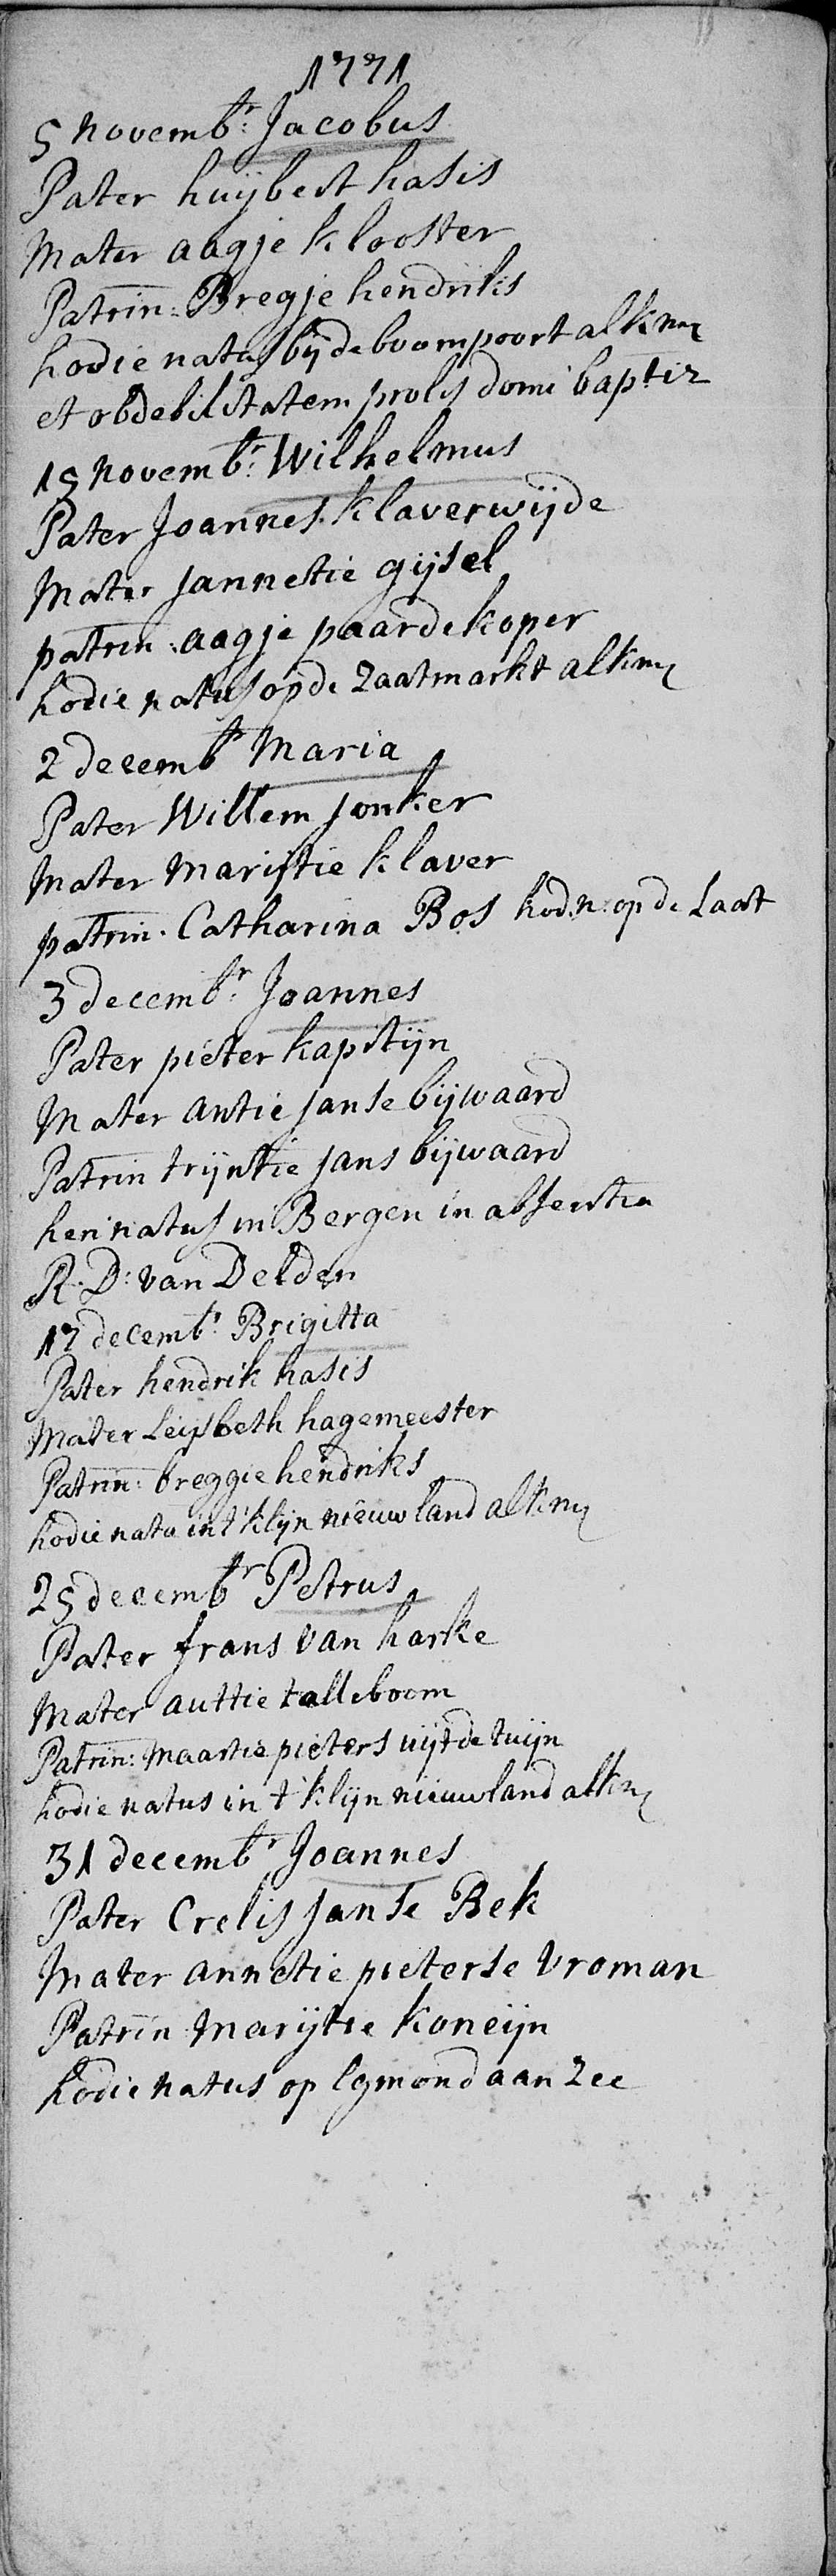 1771
5 novembr: Jacobus
Pater huijbert hasis
Mater aagje klooster
Patrin: Bregje hendriks
hodie natus bij de boompoort alkm
et ob debilitatem prolis domi baptiz
15 novembr: Wilhelmus
Pater Joannes klaverwijde
Mater Jannetie gijsel
patrin: aagje paardekoper
hodie natus op de zaatmarkt alkm
2 decembr Maria
Pater Willem Jonker
Mater Marijtie klaver
patrin. Catharina Bos hod: n: op de Laat
3 decembr: Joannes
Pater pieter kapitijn
Mater antie Janse bijwaard
Patrin trijntie Jans bijwaard
heri natus in Bergen in absentia
R. D: van Delden
17 decembr: Brigitta
Pater hendrik hasis
Mater Leijsbeth hagemeester
Patrin: breggie hendriks
hodie nata in t klijn nieuwland alkm
25 decembr Petrus
Pater frans van harke
Mater auttie talleboom
Patrin: Maartie pieters uijt de tuijn
hodie natus in t klijn nieuwland alkm
31 decembr Joannes
Pater Crelis Janse Bek
Mater annetie pieterse Vroman
Patrin Marijtie Koneijn
hodie natus op Egmond aan Zee